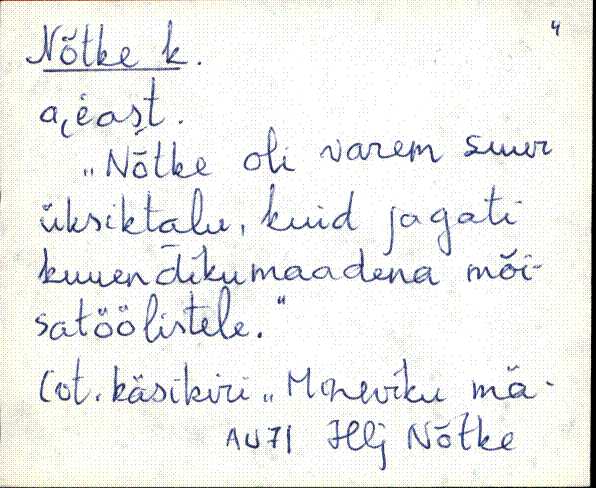 4
Nõtke k.
a, east.
„Nõtke oli varem suur
üksiktalu, kuid jagati
kuuendikumaadena mõi-
satöölistele."
(ot. käsikiri „Mineviku mä-
AU71 Hlj Nõtke